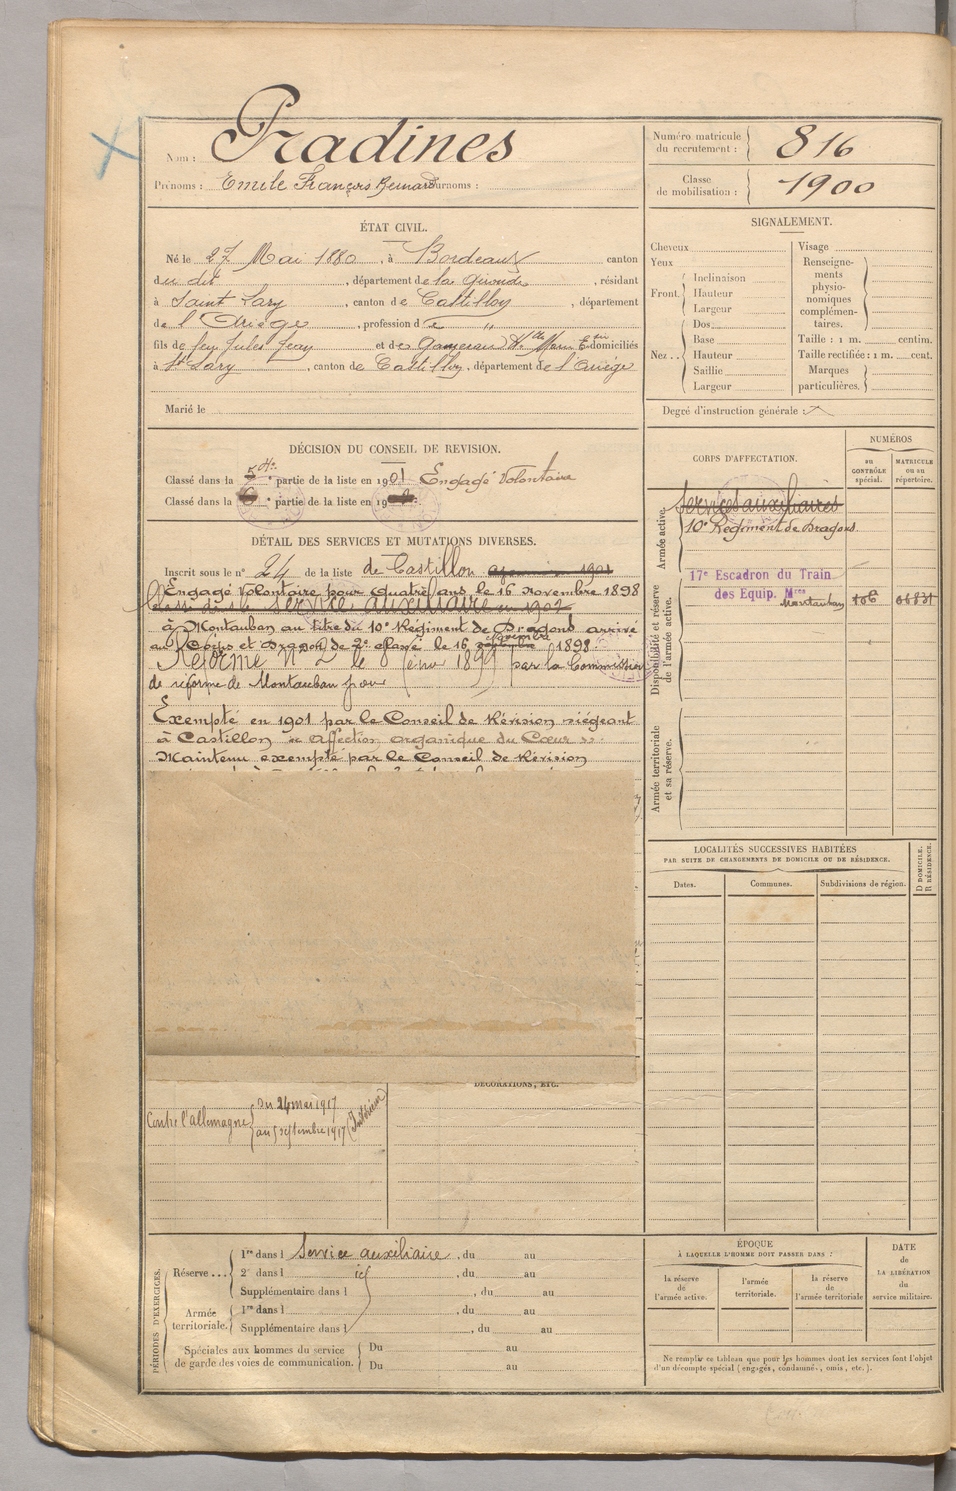 Nom : Pradines
Prénoms : Emile François Bernard Surnoms :
Numéro matricule du recrutement : 816
Classe de mobilisation : 1900
ÉTAT CIVIL.
Né le 27 Mai 1880, à Bordeaux canton
du dit, département de la Gironde, résidant
à Saint Lary, canton de Castillon, département
de l'Ariège, profession de "
fils de feu Jules Jean et de domiciliés
à St Lary, canton de Castillon, département de l'Ariège
Marié le
DÉCISION DU CONSEIL DE REVISION.
Classé dans la 5e partie de la liste en 1901 Engagé Volontaire
Classé dans la 6e partie de la liste en 190
DÉTAIL DES SERVICES ET MUTATIONS DIVERSES.
Inscrit sous le n° 24 de la liste de Castillon 1901
Engagé Volontaire pour quatre ans le 16 novembre 1898
Classé dans le service auxiliaire en 1902
à Montauban au titre du 10e Régiment de Dragons arrivé
au Corps et Dragon de 2e classe le 16 novembre 1898.
Réformé N° 2 le 8 1899 par la Commission
de réforme de Montauban pour
Exempté en 1901 par le Conseil de Révision siégeant
à Castillon « affection organique du Cœur »
Maintenu exempté par le Conseil de Révision
DÉCORATIONS, ETC.
Contre l'allemagne { du 24 mai 1917
au septembre 1917 (Intérieur)
PÉRIODES D'EXERCICES.
Réserve ... { 1re dans l Service auxiliaire, du au
2e dans l , du au
Supplémentaire dans l , du au
Armée territoriale. { 1re dans l , du au
Supplémentaire dans l , du au
Spéciales aux hommes du service de garde des voies de communication. { Du au
Du au
SIGNALEMENT.
Cheveux
Yeux
Front. { Inclinaison
Hauteur
Largeur
Nez .. { Dos
Base
Hauteur
Saillie
Largeur
Visage
Renseignements physionomiques complémentaires.
Taille : 1 m. centim.
Taille rectifiée : 1 m. cent.
Marques particulières.
Degré d'instruction générale :
CORPS D'AFFECTATION.
NUMÉROS
au CONTRÔLE spécial.
MATRICULE ou au répertoire.
Armée active.
Services auxiliaires
10e Régiment de Dragons
Disponibilité et réserve de l'armée active.
17e Escadron du Train
des Equip. Mres
Montauban 106
Armée territoriale et sa réserve.
LOCALITÉS SUCCESSIVES HABITÉES
PAR SUITE DE CHANGEMENTS DE DOMICILE OU DE RÉSIDENCE.
Dates.
Communes.
Subdivisions de région.
D DOMICILE.
R RÉSIDENCE.
ÉPOQUE
À LAQUELLE L'HOMME DOIT PASSER DANS :
la réserve de l'armée active.
l'armée territoriale.
la réserve de l'armée territoriale
DATE de LA LIBÉRATION du service militaire.
Ne remplir ce tableau que pour les hommes dont les services font l'objet
d'un décompte spécial (engagés, condamné., omis, etc.).